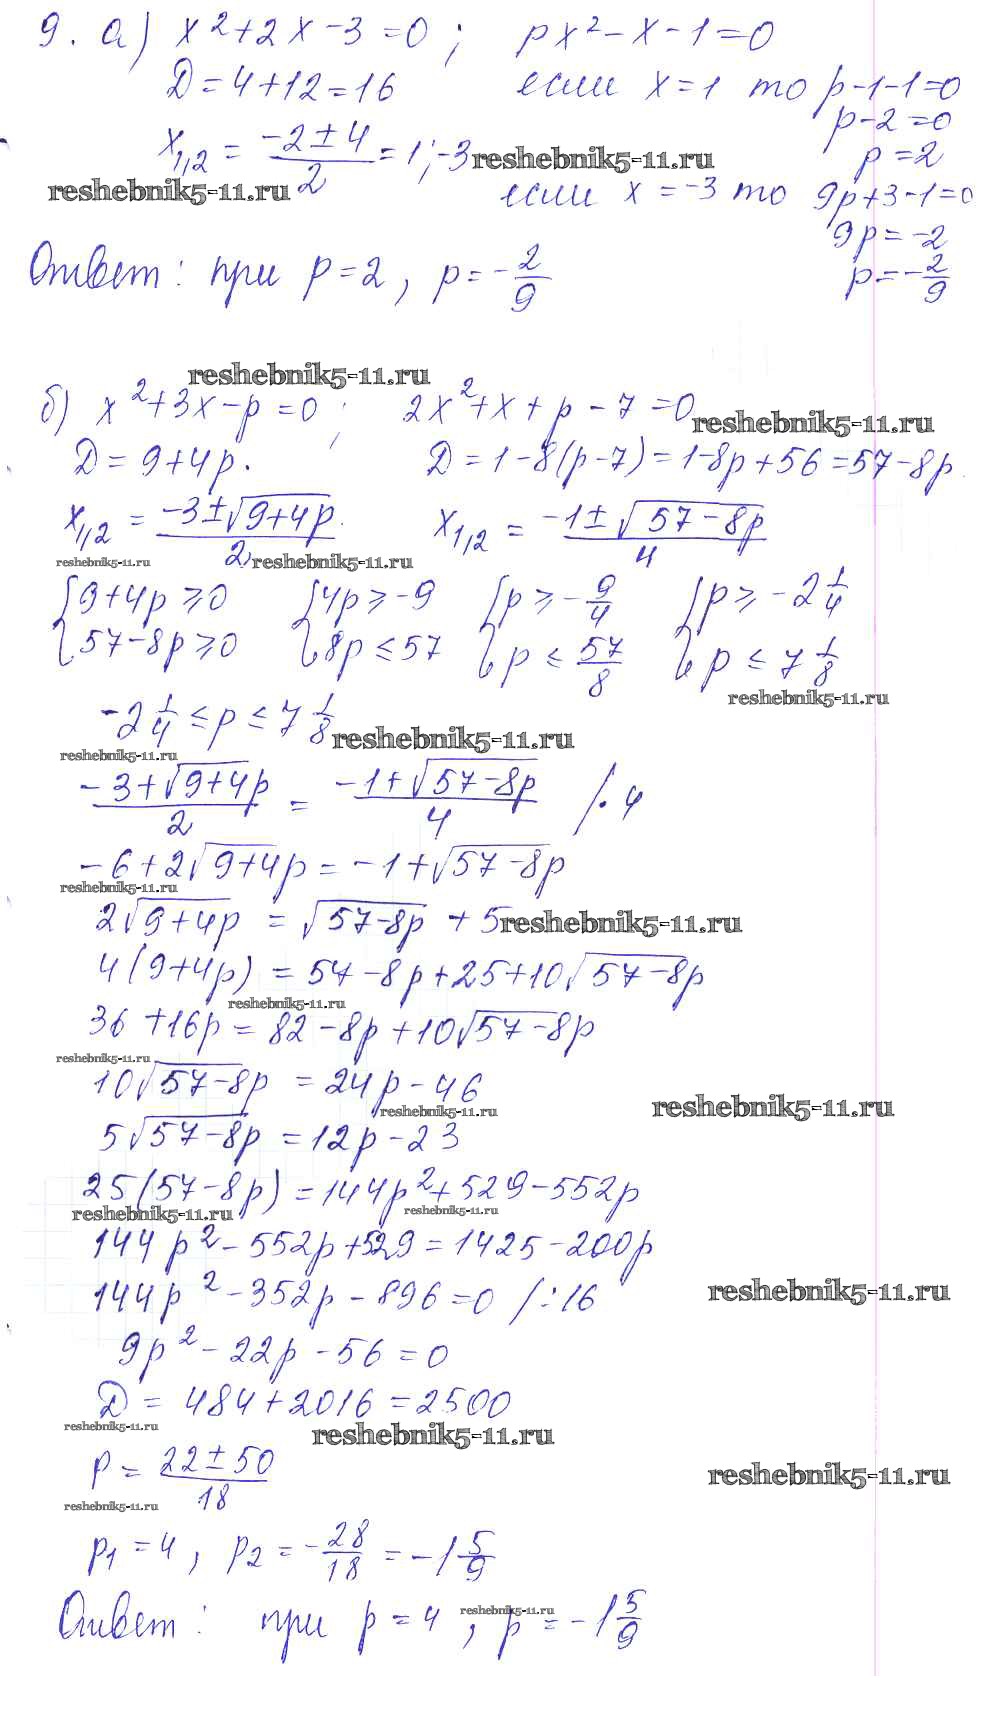 9. а) x² + 2x - 3 = 0 ; px² - x - 1 = 0
D = 4 + 12 = 16 если x = 1 то p - 1 - 1 = 0
p - 2 = 0
x₁,₂ = (-2 ± 4)/2 = 1 ; -3 reshebnik5-11.ru p = 2
reshebnik5-11.ru если x = -3 то 9p + 3 - 1 = 0
9p = -2
Ответ : при p = 2 , p = -2/9 p = -2/9
reshebnik5-11.ru
б) x² + 3x - p = 0 ; 2x² + x + p - 7 = 0 reshebnik5-11.ru
D = 9 + 4p. D = 1 - 8(p - 7) = 1 - 8p + 56 = 57 - 8p
x₁,₂ = (-3 ± √(9 + 4p))/2 x₁,₂ = (-1 ± √(57 - 8p))/4
reshebnik5-11.ru reshebnik5-11.ru
{9 + 4p ≥ 0 {4p ≥ -9 {p ≥ -9/4 {p ≥ -2 1/4
{57 - 8p ≥ 0 {8p ≤ 57 {p ≤ 57/8 {p ≤ 7 1/8
reshebnik5-11.ru
-2 1/4 ≤ p ≤ 7 1/8 reshebnik5-11.ru
reshebnik5-11.ru
(-3 + √(9 + 4p))/2 = (-1 + √(57 - 8p))/4 /· 4
-6 + 2√(9 + 4p) = -1 + √(57 - 8p)
reshebnik5-11.ru
2√(9 + 4p) = √(57 - 8p) + 5 reshebnik5-11.ru
4(9 + 4p) = 57 - 8p + 25 + 10√(57 - 8p)
reshebnik5-11.ru
36 + 16p = 82 - 8p + 10√(57 - 8p)
reshebnik5-11.ru
10√(57 - 8p) = 24p - 46
reshebnik5-11.ru reshebnik5-11.ru
5√(57 - 8p) = 12p - 23
25(57 - 8p) = 144p² + 529 - 552p
reshebnik5-11.ru reshebnik5-11.ru
144p² - 552p + 529 = 1425 - 200p
144p² - 352p - 896 = 0 /: 16 reshebnik5-11.ru
9p² - 22p - 56 = 0
D = 484 + 2016 = 2500
reshebnik5-11.ru reshebnik5-11.ru
p = (22 ± 50)/18 reshebnik5-11.ru
reshebnik5-11.ru
p₁ = 4 , p₂ = -28/18 = -1 5/9
Ответ : при p = 4 , p = -1 5/9
reshebnik5-11.ru